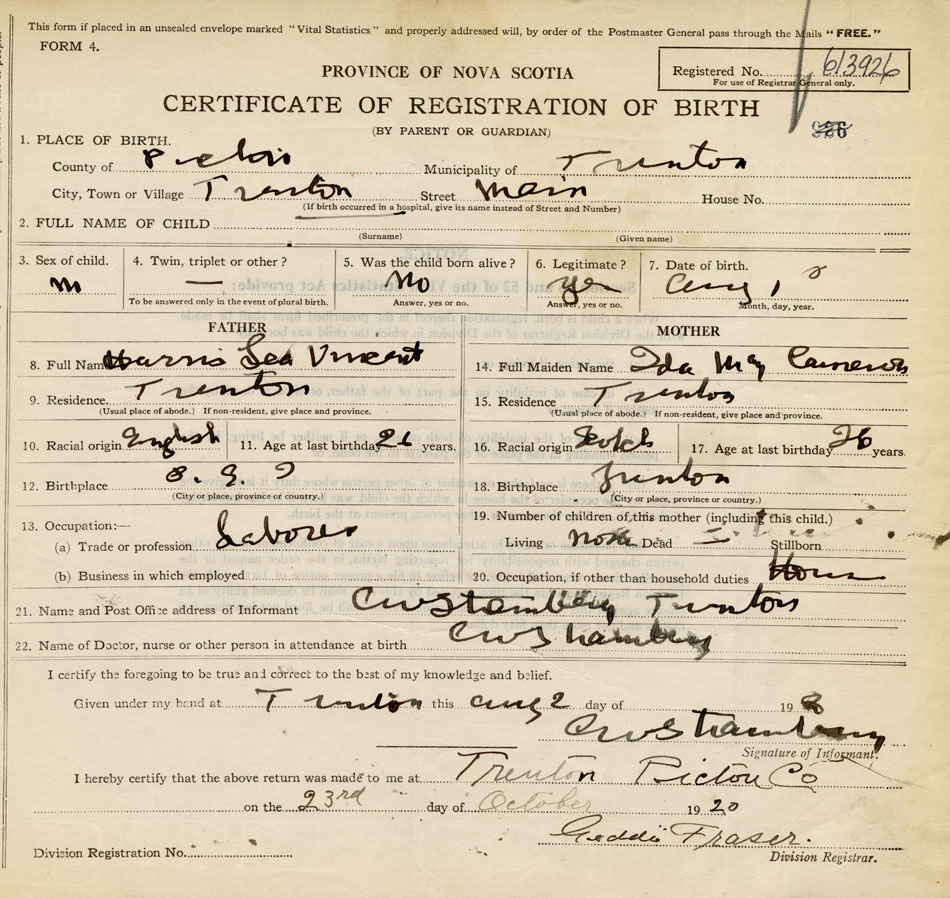 This form if placed in an unsealed envelope marked "Vital Statistics" and properly addressed will, by order of the Postmaster General pass through the Mails "FREE."
FORM 4.
PROVINCE OF NOVA SCOTIA
Registered No. 613926
For use of Registrar General only.
CERTIFICATE OF REGISTRATION OF BIRTH
(BY PARENT OR GUARDIAN)
1. PLACE OF BIRTH.
County of Pictou Municipality of Trenton
City, Town or Village Trenton Street Main House No.
(If birth occurred in a hospital, give its name instead of Street and Number)
2. FULL NAME OF CHILD
(Surname) (Given name)
3. Sex of child. 4. Twin, triplet or other? 5. Was the child born alive? 6. Legitimate? 7. Date of birth.
M — No yes Aug 1
To be answered only in the event of plural birth. Answer, yes or no. Answer, yes or no. Month, day, year.
FATHER MOTHER
8. Full Name Harris Lea Vincent 14. Full Maiden Name Ida May Cameron
9. Residence. Trenton 15. Residence Trenton
(Usual place of abode.) If non-resident, give place and province. (Usual place of abode.) If non-resident, give place and province.
10. Racial origin English 11. Age at last birthday 21 years. 16. Racial origin Scotch 17. Age at last birthday 26 years.
12. Birthplace 18. Birthplace Trenton
(City or place, province or country.) (City or place, province or country.)
13. Occupation:— 19. Number of children of this mother (including this child.)
(a) Trade or profession. Laborer Living none Dead Stillborn
(b) Business in which employed 20. Occupation, if other than household duties House
21. Name and Post Office address of Informant Trenton
22. Name of Doctor, nurse or other person in attendance at birth
I certify the foregoing to be true and correct to the best of my knowledge and belief.
Given under my hand at Trenton this Aug 2 day of 19
Signature of Informant.
I hereby certify that the above return was made to me at Trenton Pictou Co
on the 23rd day of October 1920
Geddie Fraser.
Division Registration No. Division Registrar.